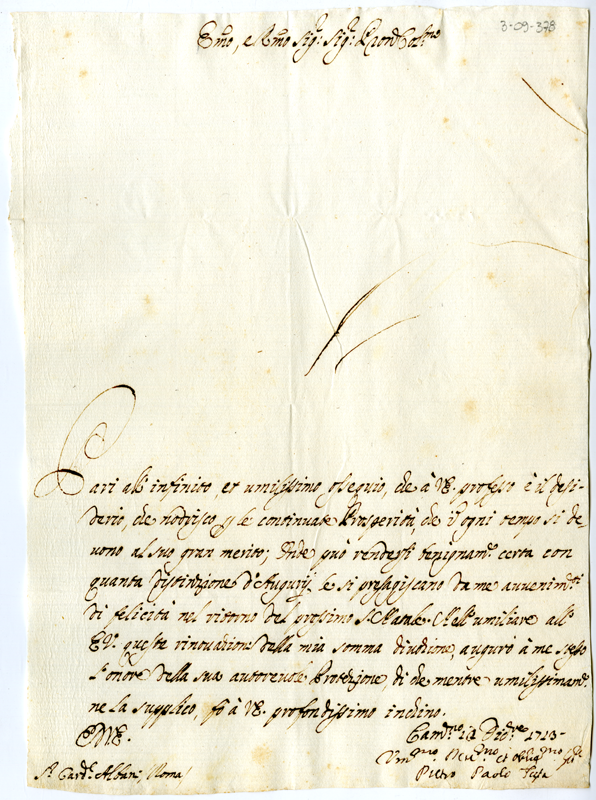 3-09-378
Emo, e Rmo Sig.r Sig.r Pron Col.mo
Pari all' infinito, et umilissimo ossequio, che à VE. professo è il desi-
derio, che nodrisco p le continuate Prosperità, che in ogni tempo si de-
uono al suo gran merito; Onde può rendersi benignam.te certa con
quanta distinzione d'Augurij le si presagiscano da me auuenim.ti
di felicità nel ritorno del prossimo S. Natale. Nell' umiliare all'
EV. queste rinouazioni della mia somma diuozione, auguro à me stesso
l'onore della sua autoreuole Protezione, di che mentre umilissimam.te
ne la supplico, fò à VE. profondissimo inchino.
Xbre 1713
Um.mo Deu.mo et oblig.mo
S.r Card.le Albani, Roma
Pietro Paolo Testa